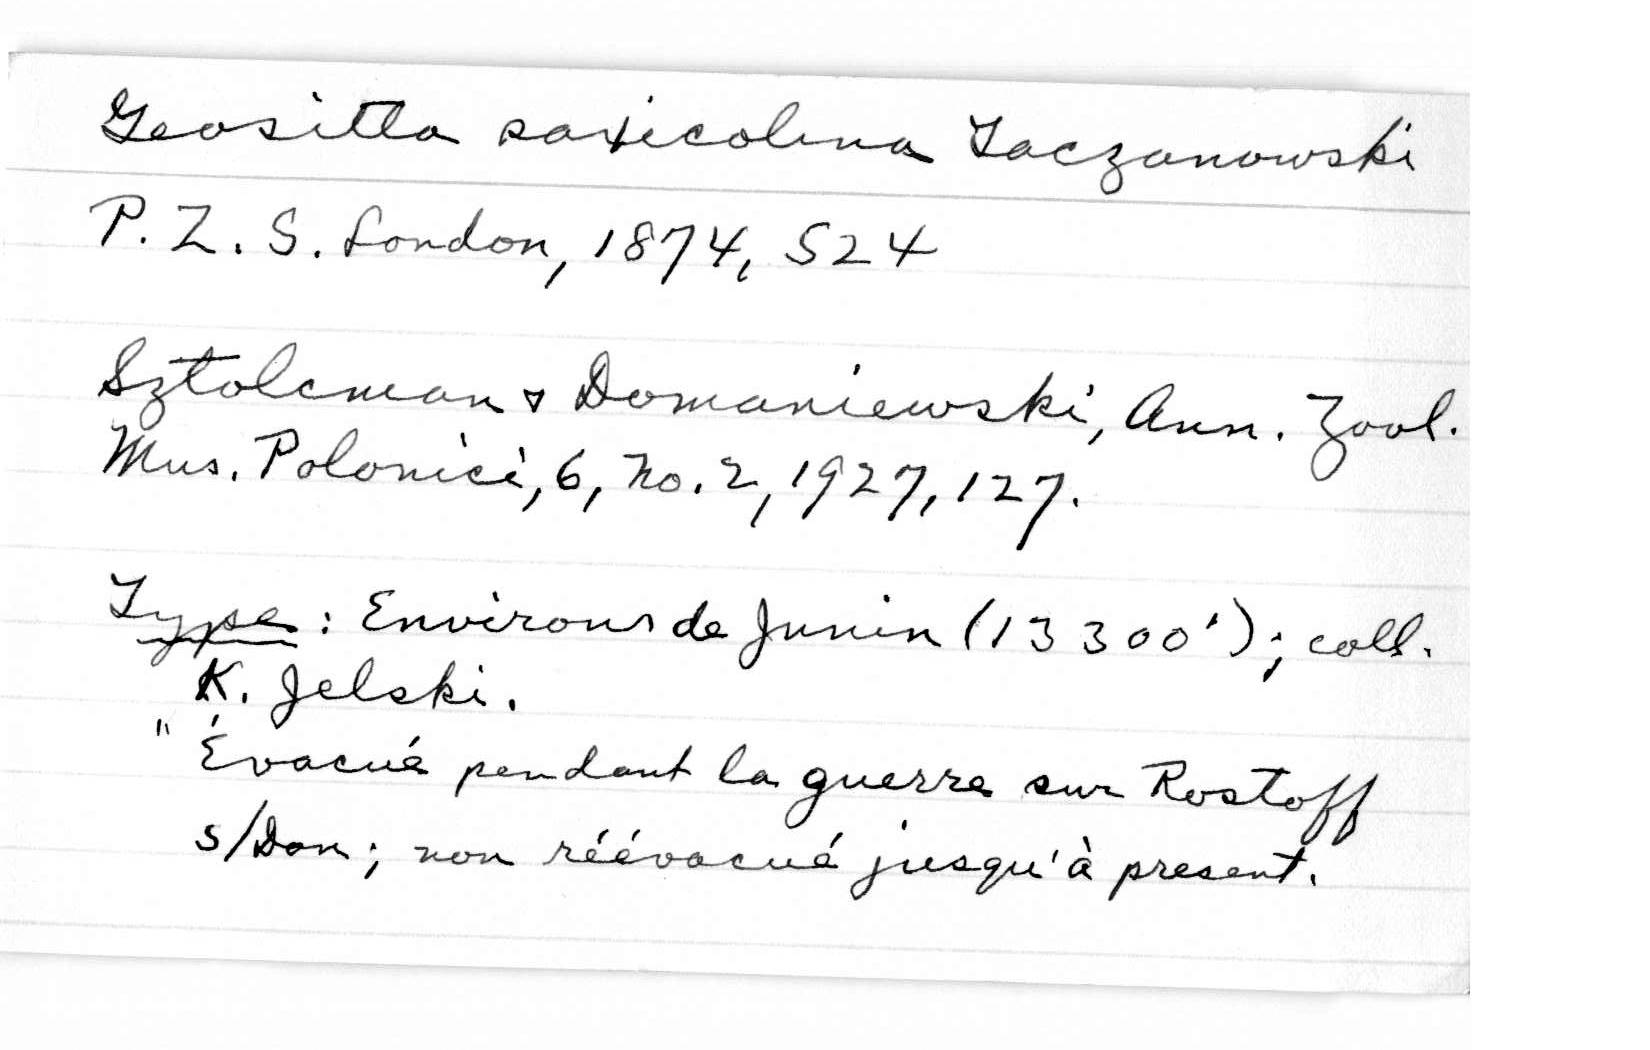 Geositta saxicolina Taczanowski
P. Z. S. London, 1874, 524
Sztolcman & Domaniewski, Ann. Zool.
Mus. Polonici, 6, No. 2, 1927, 127.
Type : Environs de Junin (13300'); coll.
K. Jelski.
"Évacué pendant la guerre sur Rostoff
s/Don ; non réévacué jusqu'à present.